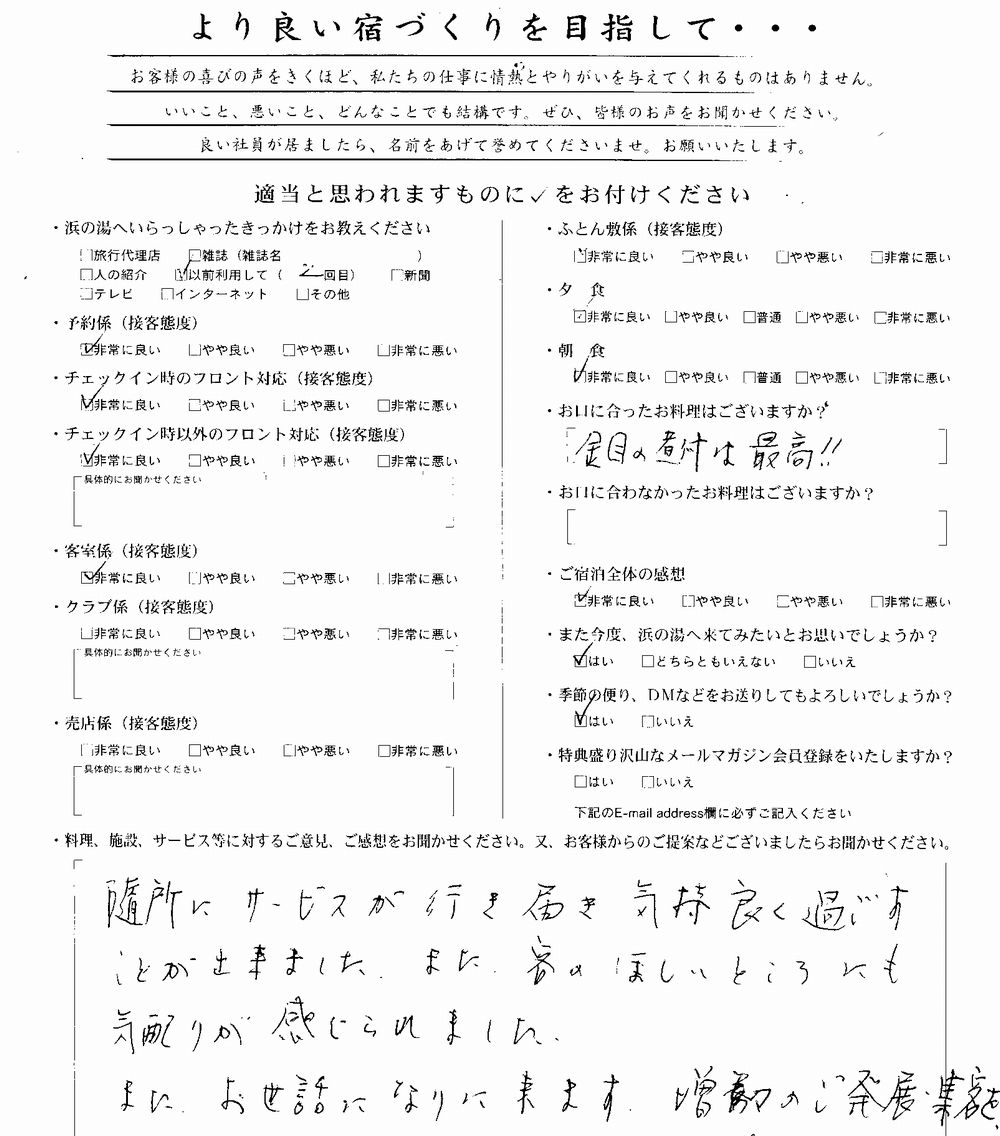 より良い宿づくりを目指して・・・
お客様の喜びの声をきくほど、私たちの仕事に情熱とやりがいを与えてくれるものはありません。
いいこと、悪いこと、どんなことでも結構です。ぜひ、皆様のお声をお聞かせください。
良い社員が居ましたら、名前をあげて誉めてくださいませ。お願いいたします。
適当と思われますものに✓をお付けください
・浜の湯へいらっしゃったきっかけをお教えください
□旅行代理店 □雑誌（雑誌名 ）
□人の紹介 ☑以前利用して（ 2回目） □新聞
□テレビ □インターネット □その他
・予約係（接客態度）
☑非常に良い □やや良い □やや悪い □非常に悪い
・チェックイン時のフロント対応（接客態度）
☑非常に良い □やや良い □やや悪い □非常に悪い
・チェックイン時以外のフロント対応（接客態度）
☑非常に良い □やや良い □やや悪い □非常に悪い
具体的にお聞かせください
・客室係（接客態度）
☑非常に良い □やや良い □やや悪い □非常に悪い
・クラブ係（接客態度）
□非常に良い □やや良い □やや悪い □非常に悪い
具体的にお聞かせください
・売店係（接客態度）
□非常に良い □やや良い □やや悪い □非常に悪い
具体的にお聞かせください
・ふとん敷係（接客態度）
☑非常に良い □やや良い □やや悪い □非常に悪い
・夕 食
☑非常に良い □やや良い □普通 □やや悪い □非常に悪い
・朝 食
☑非常に良い □やや良い □普通 □やや悪い □非常に悪い
・お口に合ったお料理はございますか？
金目の煮付は最高!!
・お口に合わなかったお料理はございますか？
・ご宿泊全体の感想
☑非常に良い □やや良い □やや悪い □非常に悪い
・また今度、浜の湯へ来てみたいとお思いでしょうか？
☑はい □どちらともいえない □いいえ
・季節の便り、DMなどをお送りしてもよろしいでしょうか？
☑はい □いいえ
・特典盛り沢山なメールマガジン会員登録をいたしますか？
□はい □いいえ
下記のE-mail address欄に必ずご記入ください
・料理、施設、サービス等に対するご意見、ご感想をお聞かせください。又、お客様からのご提案などございましたらお聞かせください。
随所にサービスが行き届き気持良く過ごす
ことが出来ました。また、客のほしいところにも
気配りが感じられました。
また、お世話になりに来ます。増々のご発展・集客を